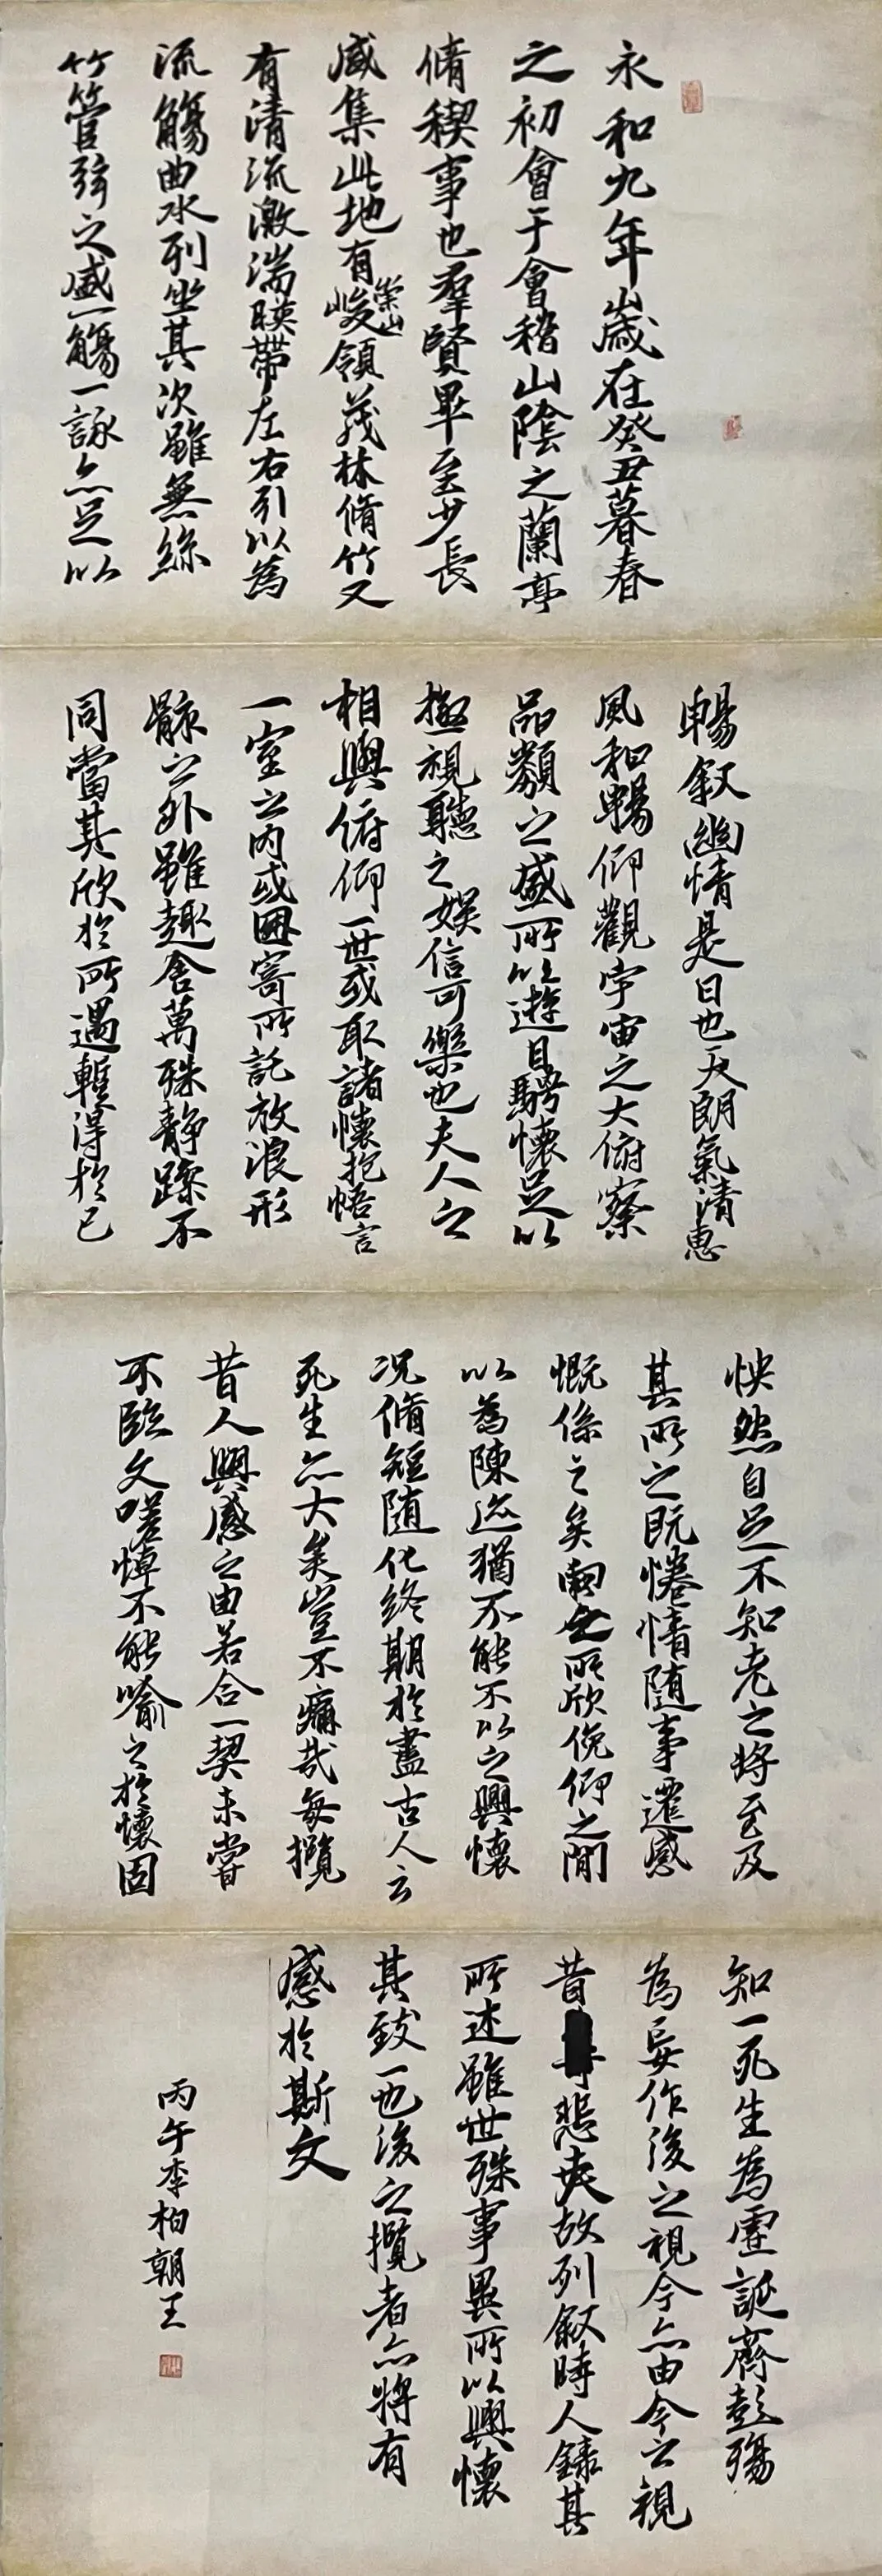 永和九年歲在癸丑暮春
之初會于會稽山陰之蘭亭
脩稧事也羣賢畢至少長
咸集此地有崇山峻領茂林脩竹又
有清流激湍暎帶左右引以為
流觴曲水列坐其次雖無絲
竹管弦之盛一觴一詠亦足以
暢叙幽情是日也天朗氣清惠
風和暢仰觀宇宙之大俯察
品類之盛所以遊目騁懷足以
極視聽之娛信可樂也夫人之
相與俯仰一世或取諸懷抱悟言
一室之内或因寄所託放浪形
骸之外雖趣舍萬殊静躁不
同當其欣於所遇蹔得於己
怏然自足不知老之將至及
其所之既惓情随事遷感
慨係之矣向之所欣俛仰之閒
以為陳迹猶不能不以之興懷
况脩短随化終期於盡古人云
死生亦大矣豈不痛哉每攬
昔人興感之由若合一契未嘗
不臨文嗟悼不能喻之於懷固
知一死生為虛誕齊彭殤
為妄作後之視今亦由今之視
昔悲夫故列叙時人錄其
所述雖世殊事異所以興懷
其致一也後之攬者亦將有
感於斯文
丙午李柏朝王